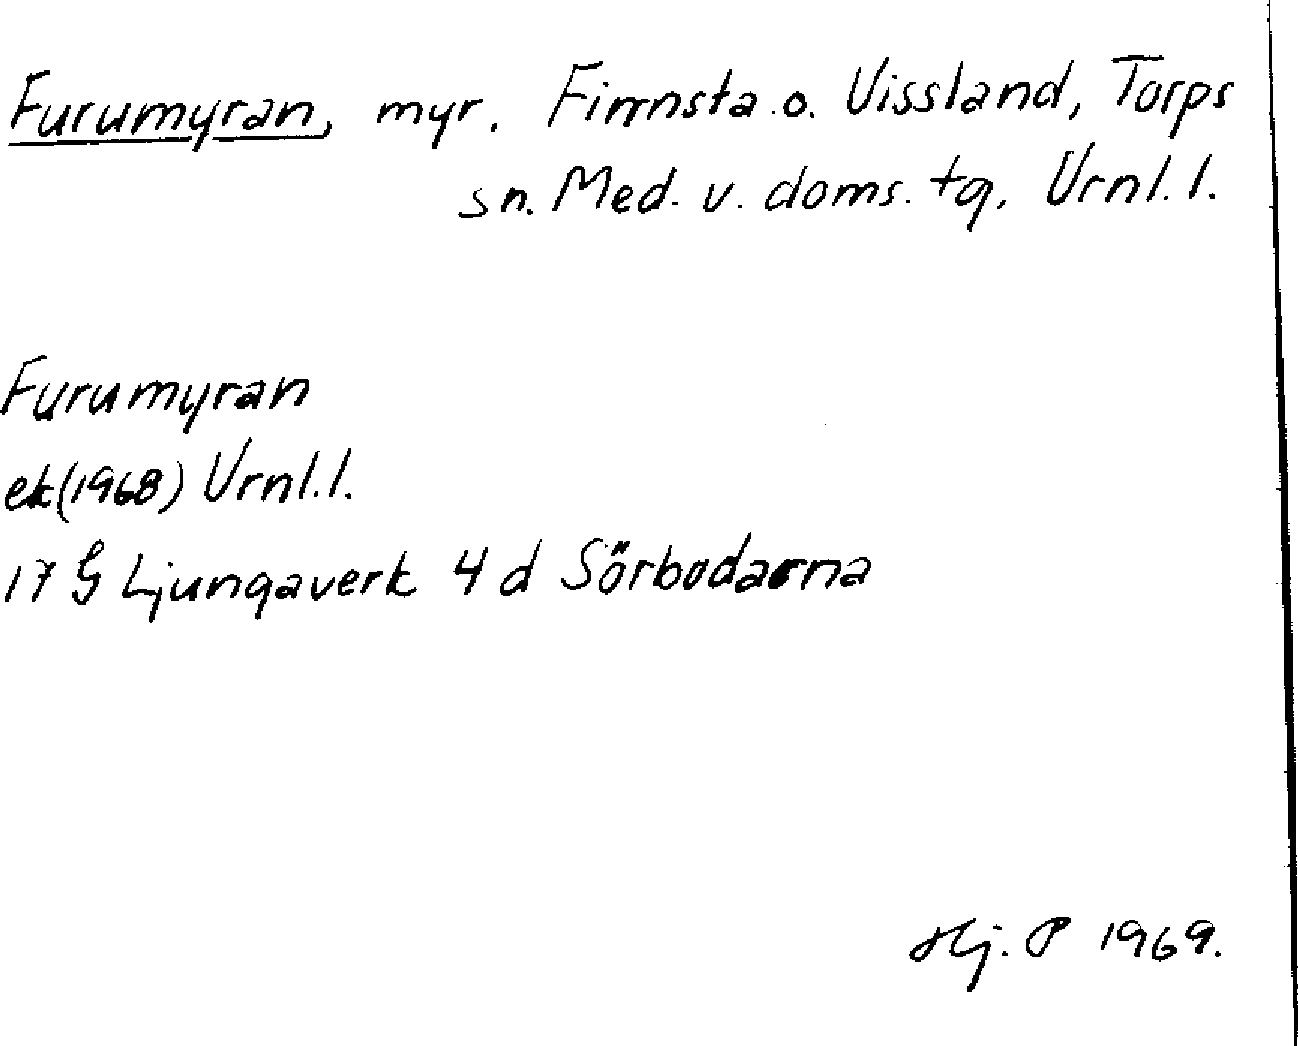 Furumyran, myr. Finnsta o. Vissland, Torps
sn. Med. v. doms. tg, Vrnl. l.
Furumyran
ek (1968) Vrnl. l.
17 G Ljungaverk 4 d Sörbodarna
Hj. P 1969.